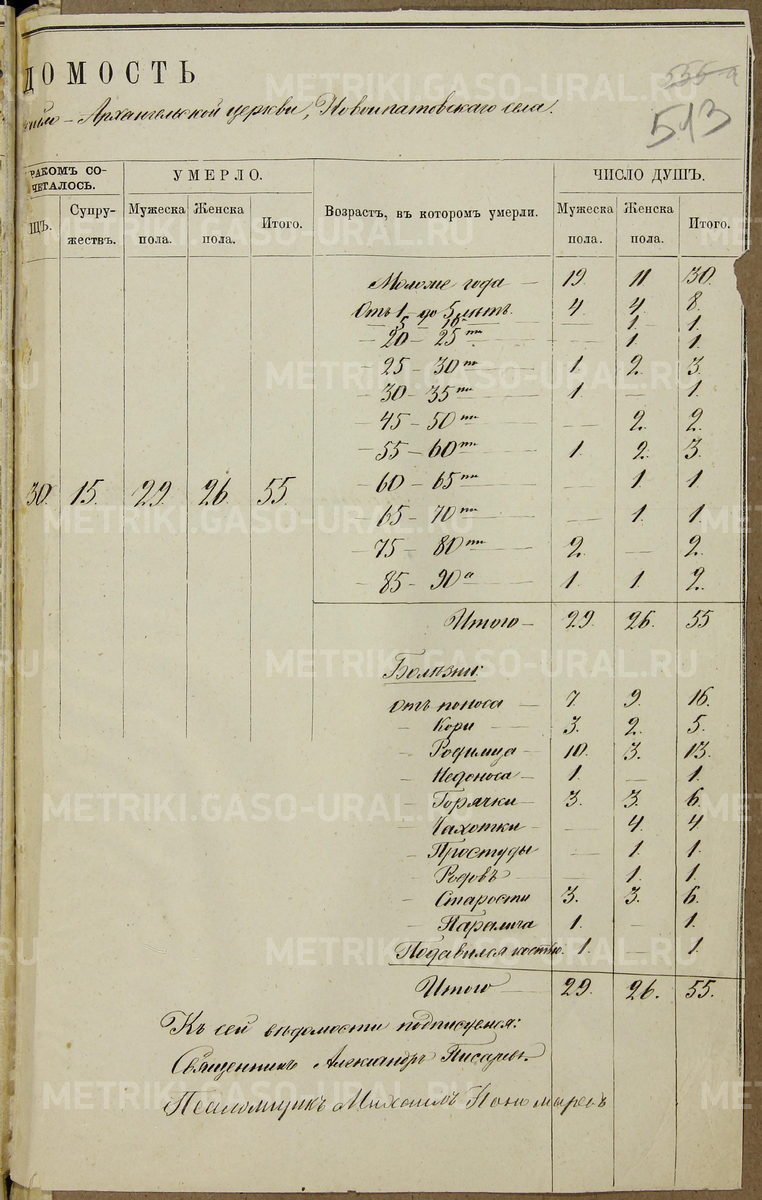 ДОМОСТЬ
535 а
513
Архангельской церкви, Новоипатовскаго села.
РАКОМЪ СО-
ЧЕТАЛОСЬ.
УМЕРЛО.
Возрастъ, въ которомъ умерли.
ЧИСЛО ДУШЪ.
ЩЪ.
Супру-
жествъ.
Мужеска
пола.
Женска
пола.
Итого.
Мужеска
пола.
Женска
пола.
Итого.
Моложе года — 19. 11 30.
Отъ 1 до 5 лѣтъ. 4 4. 8.
— 5 — 10 — — 1. 1.
— 20 — 25ти — 1. 1.
— 25 — 30ти 1. 2. 3.
— 30 — 35ти 1. — 1.
— 45 — 50ти — 2. 2.
— 55 — 60ти 1. 2. 3.
— 60 — 65ти — 1. 1
— 65 — 70ти — 1. 1.
— 75 — 80ти 2. — 2.
— 85 — 90а 1. 1. 2.
30. 15. 29. 26. 55.
Итого — 29. 26. 55
Болѣзни:
Отъ поноса — 7. 9. 16.
— Кори — 3. 2. 5.
— Родимца — 10. 3. 13.
— Недоноса — 1. — 1.
— Горячки — 3. 3. 6.
— Чахотки — — 4. 4
— Простуды — 1. 1.
— Родовъ — 1. 1.
— Старости 3. 3. 6.
— Паралича 1. — 1.
Подавился костью. 1. — 1.
Итого 29. 26. 55.
Къ сей вѣдомости подписуемся:
Священникъ Александръ Писаревъ.
Псаломщикъ Михаилъ Пономаревъ
METRIKI.GASO-URAL.RU